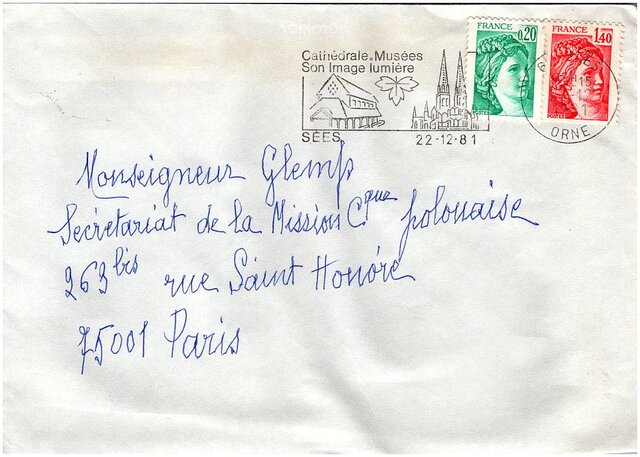 Cathédrale.Musées
Son Image lumière
SÉES
22-12-81
FRANCE
0,20
POSTES
FRANCE
1,40
POSTES
ORNE
Monseigneur Glemp
Secrétariat de la Mission Cque polonaise
263 bis rue Saint Honoré
75001 Paris